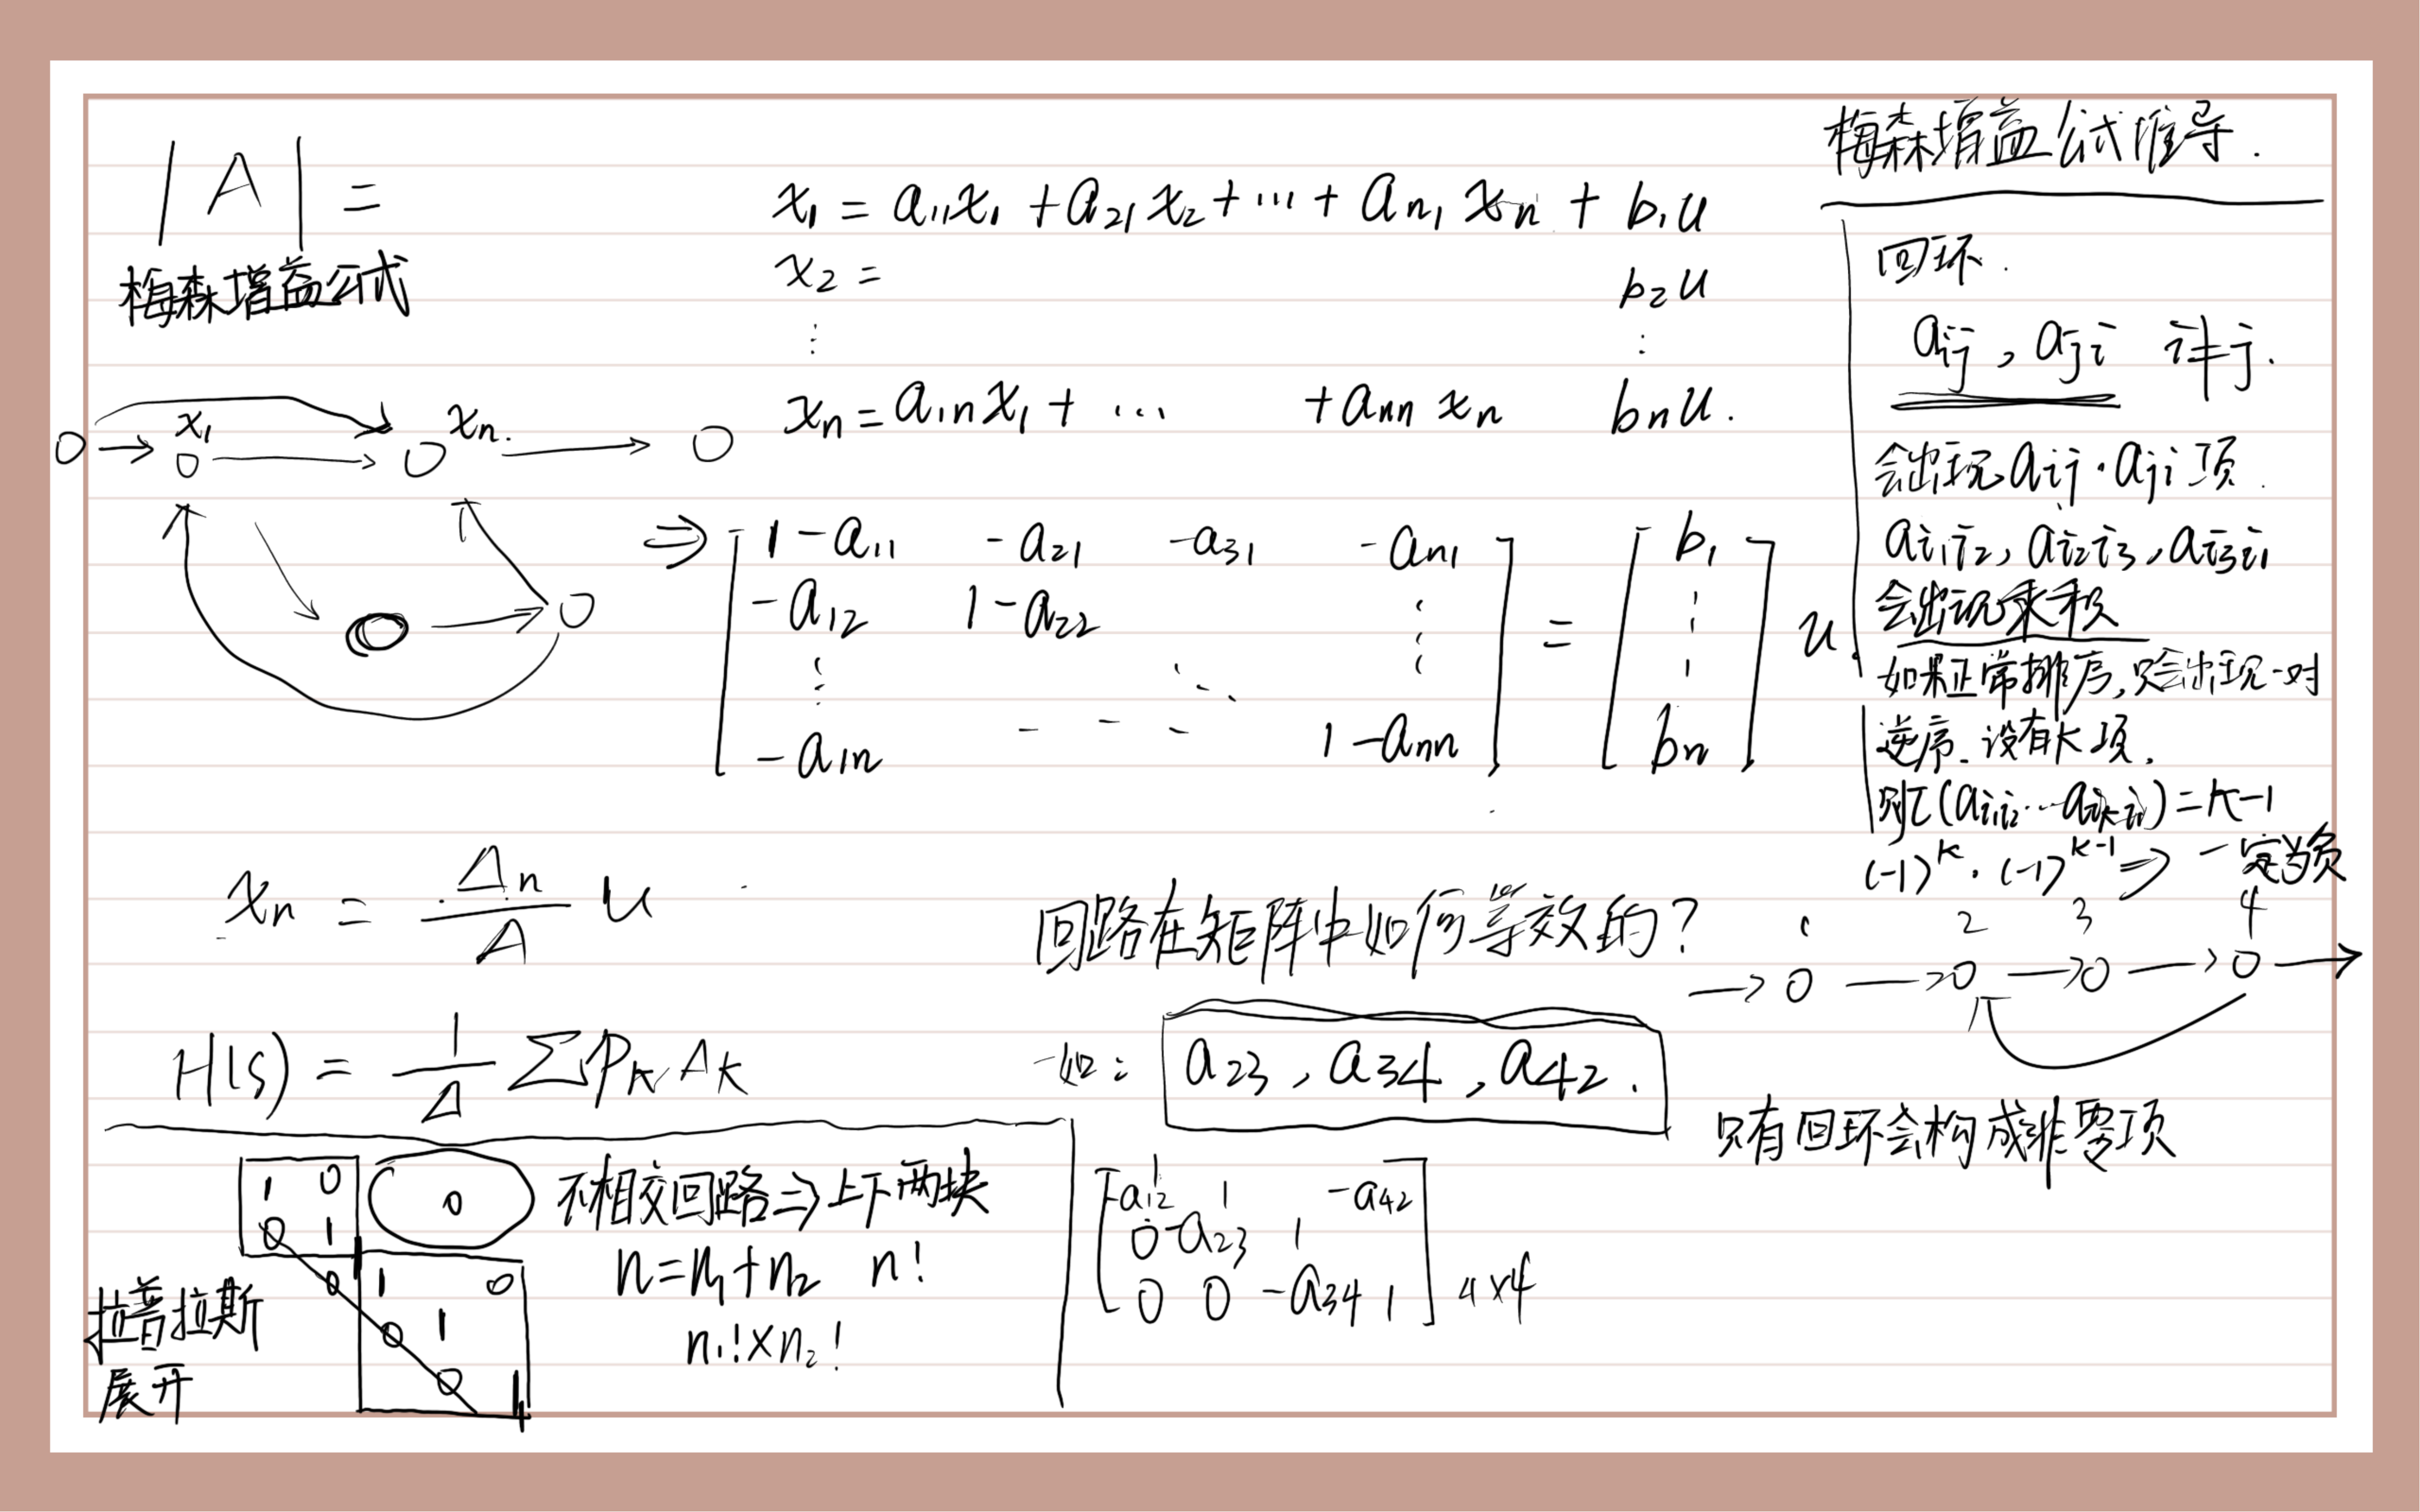 梅森增益公式推导.
|A| =
梅森增益公式
x₁ = a₁₁x₁ + a₂₁x₂ + ⋯ + aₙ₁xₙ + b₁u
x₂ = b₂u
⋮ ⋮
xₙ = a₁ₙx₁ + ⋯ + aₙₙxₙ bₙu.
x₁ xₙ.
⇒ [ 1-a₁₁ -a₂₁ -a₃₁ -aₙ₁ ] [ b₁ ]
-a₁₂ 1-a₂₂ ⋮ = ⋮ u.
⋮ ⋱ ⋮
-a₁ₙ - - - 1-aₙₙ bₙ
xₙ = Δₙ/Δ u
H(s) = 1/Δ ΣPₖΔₖ
回环.
aᵢⱼ, aⱼᵢ i≠j.
会出现aᵢⱼ·aⱼᵢ项.
aᵢ₁ᵢ₂, aᵢ₂ᵢ₃, aᵢ₃ᵢ₁
会出现乘积
如果正常排序,只会出现一对
逆序.设有k项.
则τ(aᵢ₁ᵢ₂⋯aᵢₖᵢ₁)=k-1
(-1)ᵏ·(-1)ᵏ⁻¹⇒一定为负
回路在矩阵中如何等效的?
1 2 3 4
→0→0→0→0→
如: a₂₃, a₃₄, a₄₂.
只有回环会构成非零项
1 0
0 1
0
0 1 0
0 1
0 1
不相交回路⇒上下两块
n=n₁+n₂ n!
n₁!×n₂!
拉普拉斯
展开
1
-a₁₂ 1 -a₄₂
0 -a₂₃ 1
0 0 -a₃₄ 1 4×4